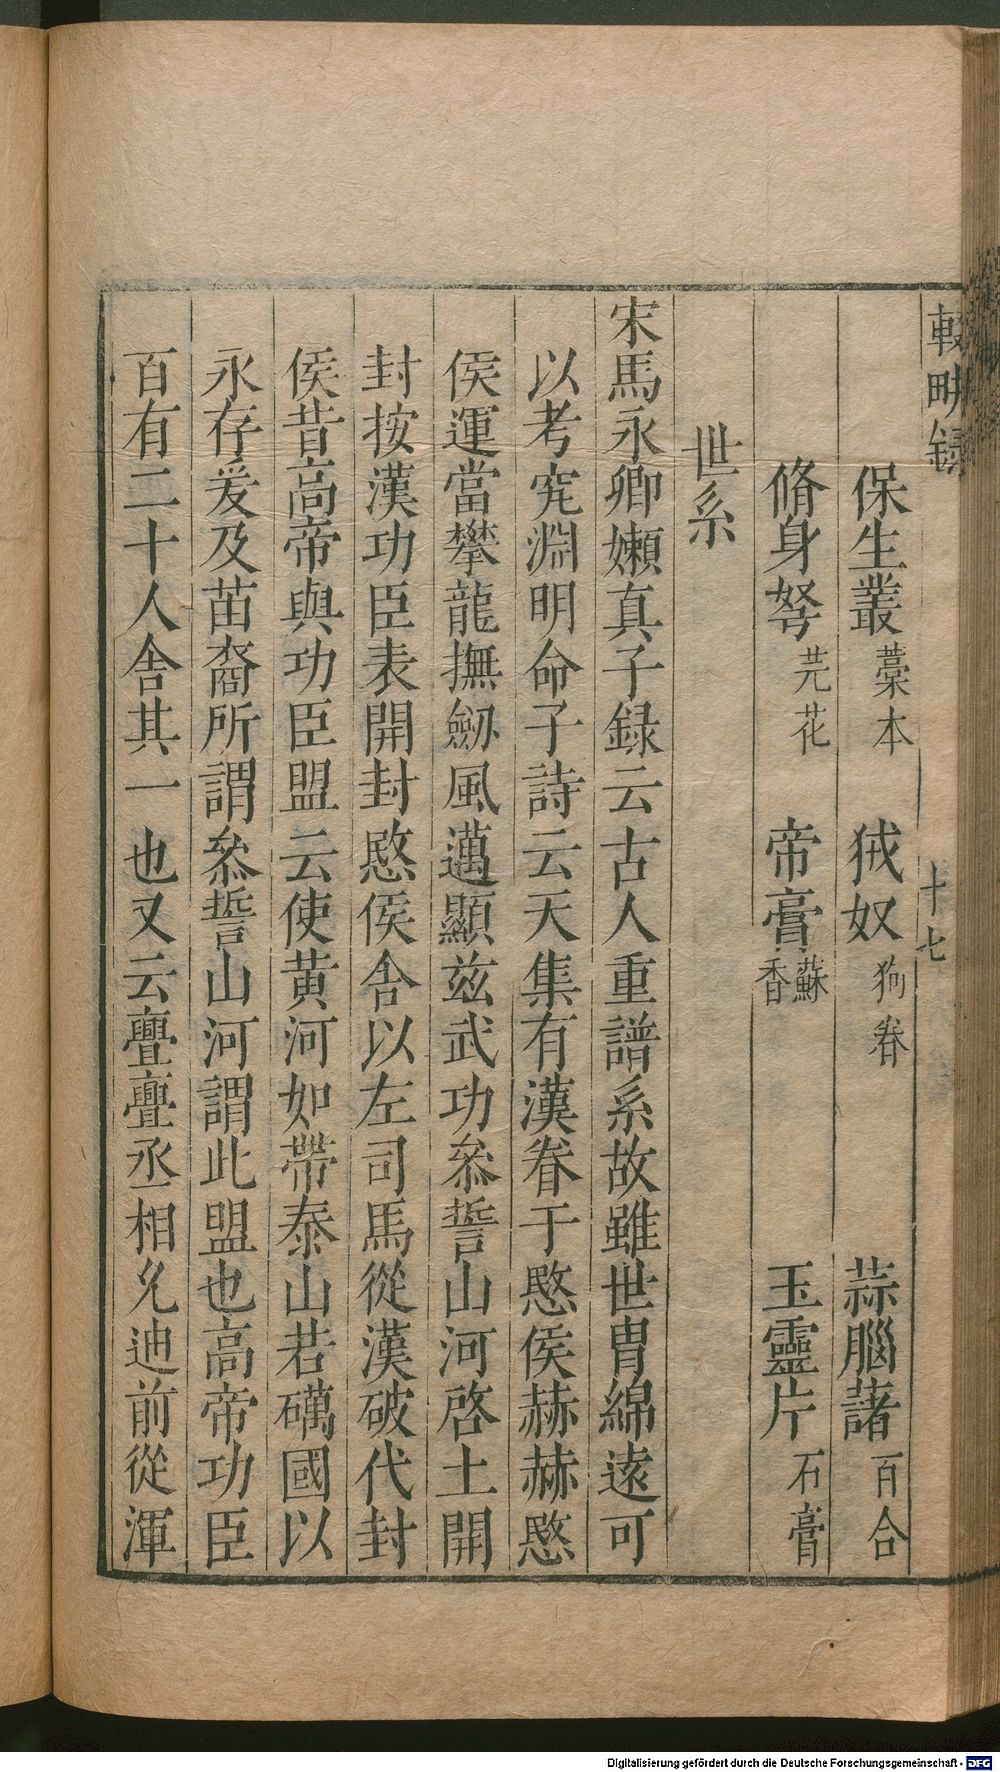 輟畊録
十七
保生叢藁本 狨奴狗卷 蒜腦藷百合
脩身弩芫花 帝膏蘇香 玉靈片石膏
世系
宋馬永卿嬾真子録云古人重譜系故雖世胄綿遠可
以考究淵明命子詩云天集有漢眷于愍侯赫赫愍
侯運當攀龍撫劒風邁顯兹武功叅誓山河啓土開
封按漢功臣表開封愍侯舍以左司馬從漢破代封
侯昔高帝與功臣盟云使黄河如帶泰山若礪國以
永存爰及苗裔所謂叅誓山河謂此盟也高帝功臣
百有二十人舍其一也又云亹亹丞相允迪前從渾
Digitalisierung gefördert durch die Deutsche Forschungsgemeinschaft - DFG